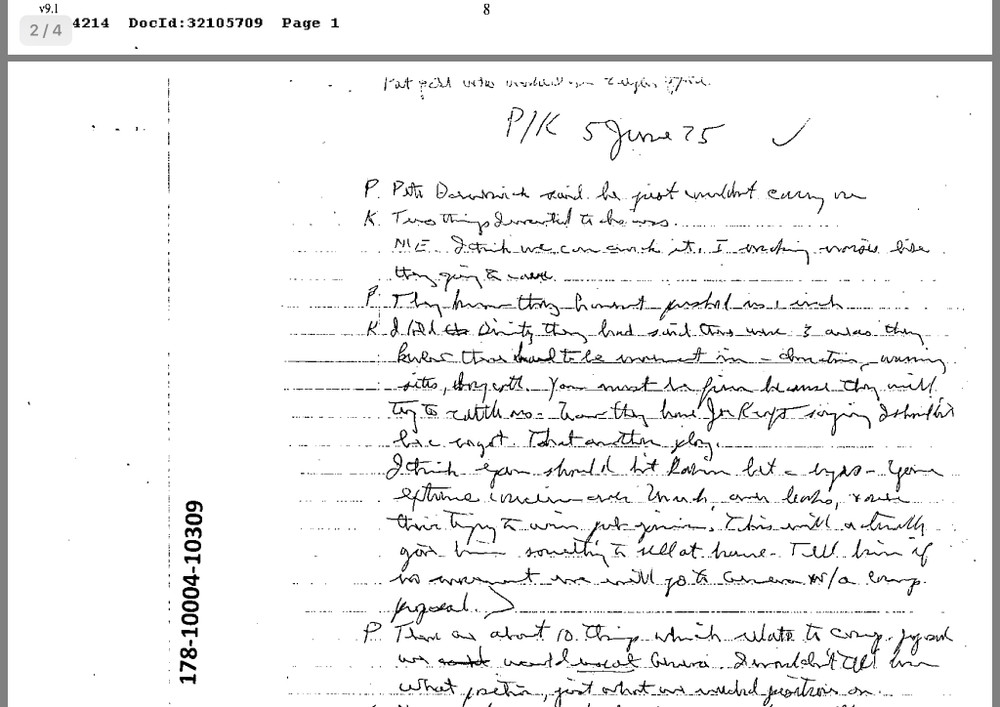 v9.1
8
4214 DocId:32105709 Page 1
2/4
P/K 5 June 75 ✓
P. said he just wouldn't carry on
K. Two things I wanted to discuss.
ME. I think we can crack it. I making noises like
they going to cave.
P. They know they haven't pushed us 1 inch
K I told Dinitz they had said there were 3 areas they
knew there had to be movement in – duration, warning
sites, boycott. You must be firm because they will
try to rattle us – Now they have Joe Kraft saying I shouldn't
be. That another ploy.
I think you should hit Rabin let – Your
extreme concern over March, over leaks, over
their trying to win. This will actually
give him something to sell at home – Tell him if
no movement we will go to Geneva w/a comp.
proposal.
P. There are about 10 things which relate to comp. proposal
we would Geneva. I wouldn't tell him
what position, just what we needed positions on.
178-10004-10309